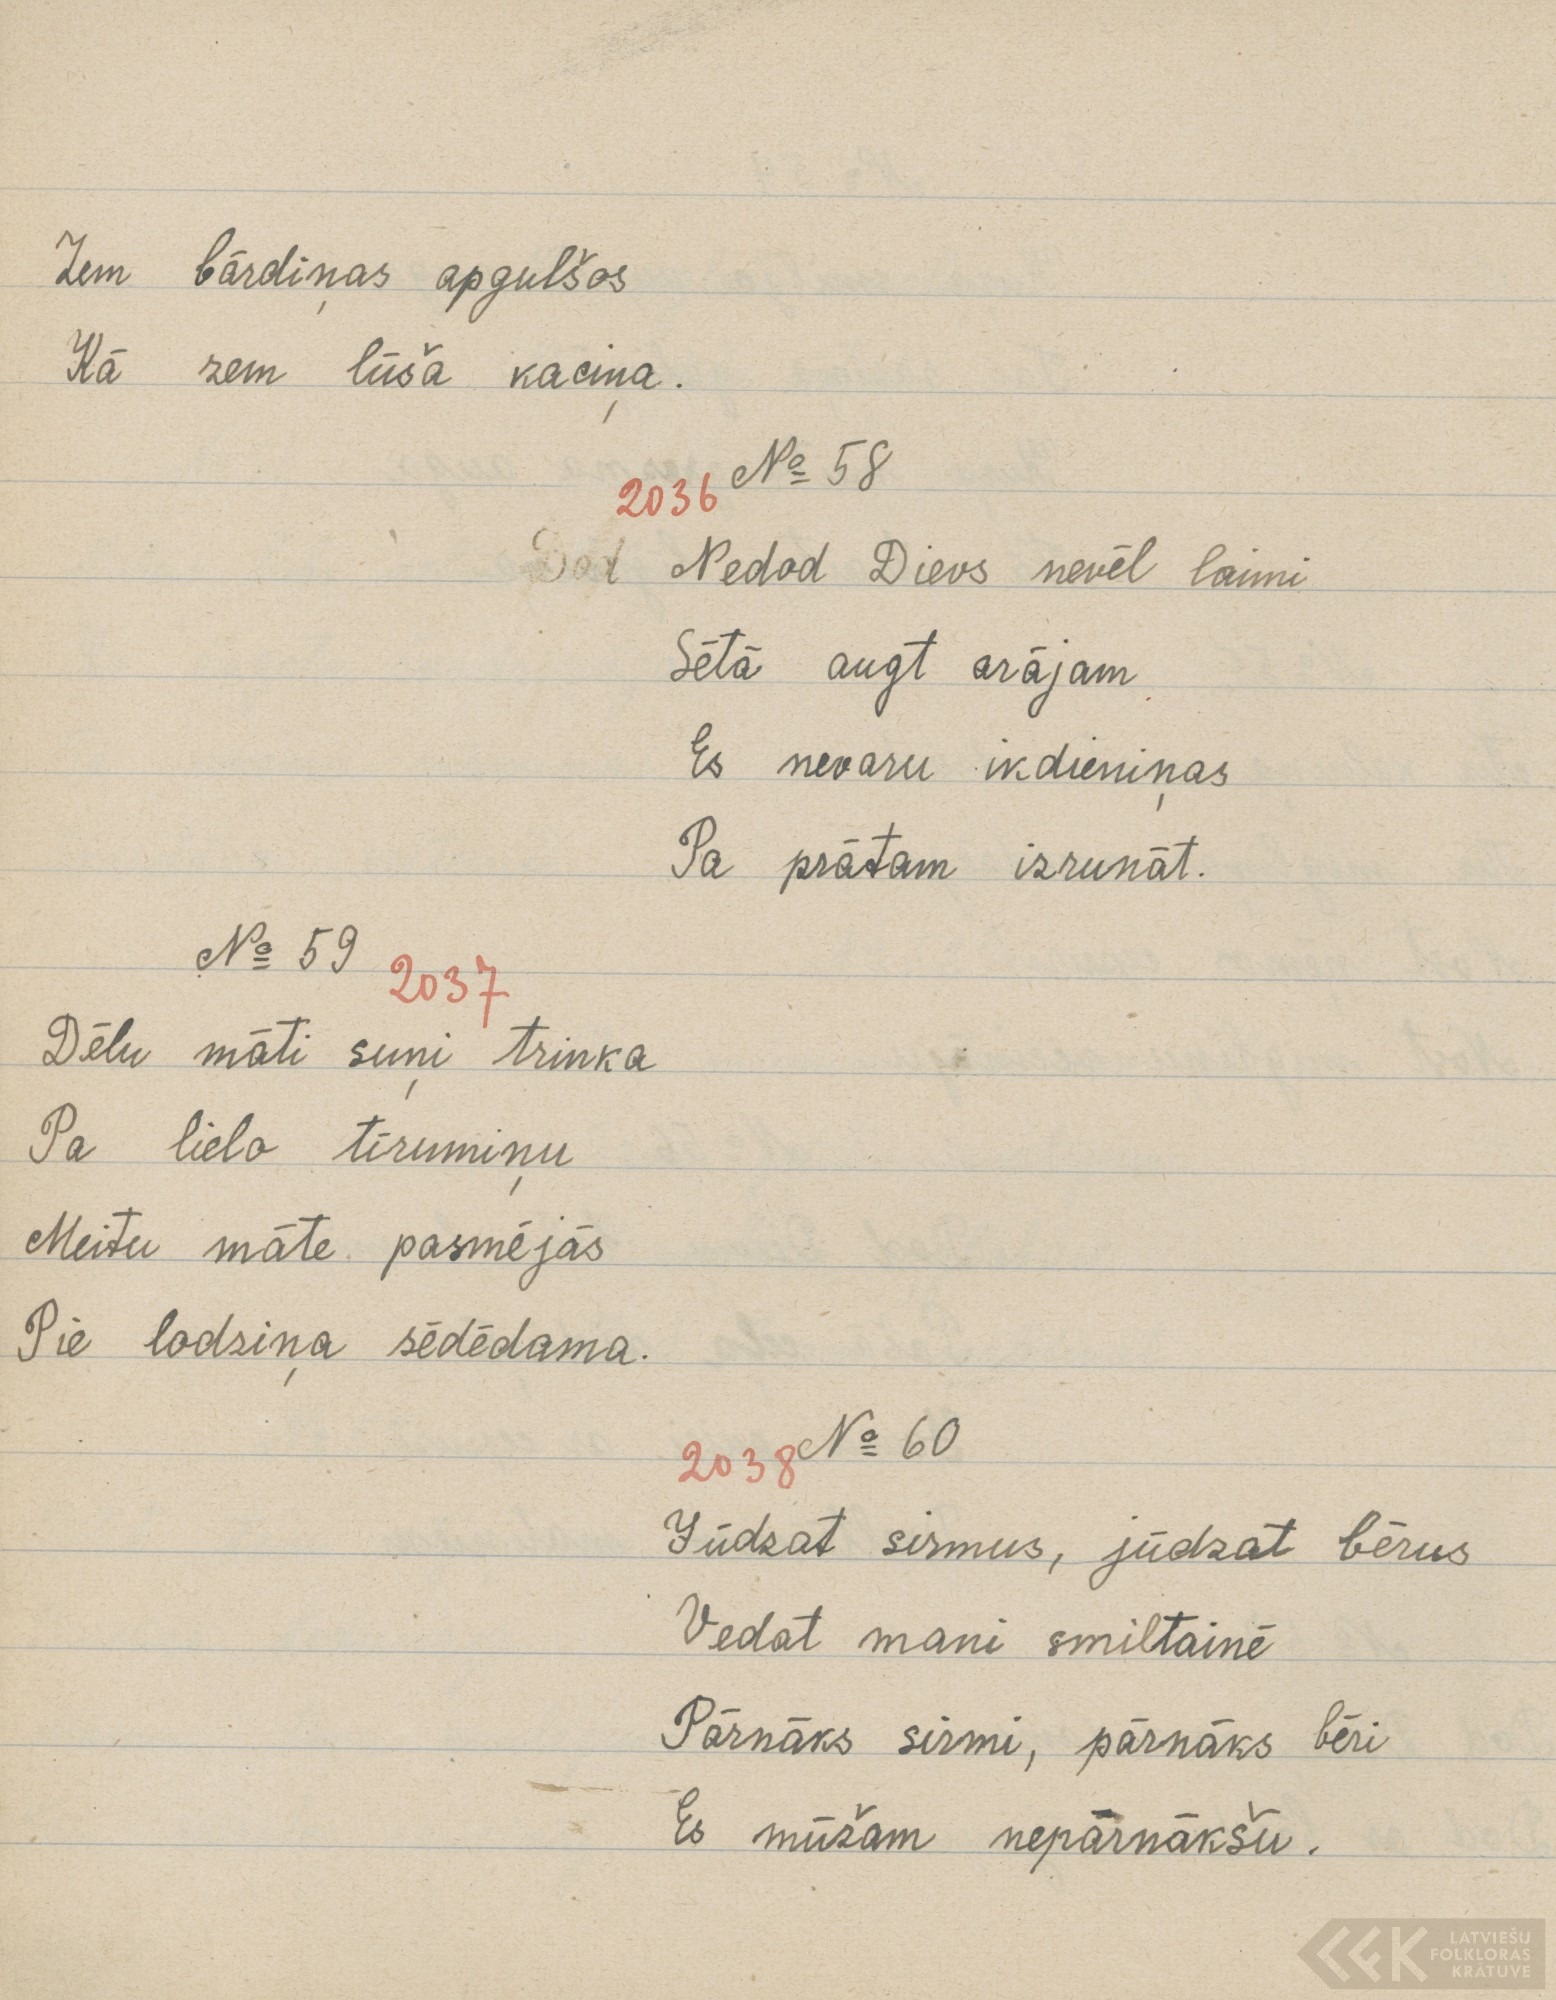 Zem bārdiņas apgulšos
Kā zem lūša kaciņa.
№ 58
2036
Dod Nedod Dievs nevēl laimi
Sētā augt arājam
Es nevaru ikdieniņas
Pa prātam izrunāt.
№ 59 2037
Dēlu māti suņi trinka
Pa lielo tīrumiņu
Meitu māte pasmējās
Pie lodziņa sēdēdama.
2038 № 60
Jūdzat sirmus, jūdzat bērus
Vedat mani smiltainē
Pārnāks sirmi, pārnāks bēri
Es mūžam nepārnākšu.
LATVIEŠU
FOLKLORAS
KRĀTUVE